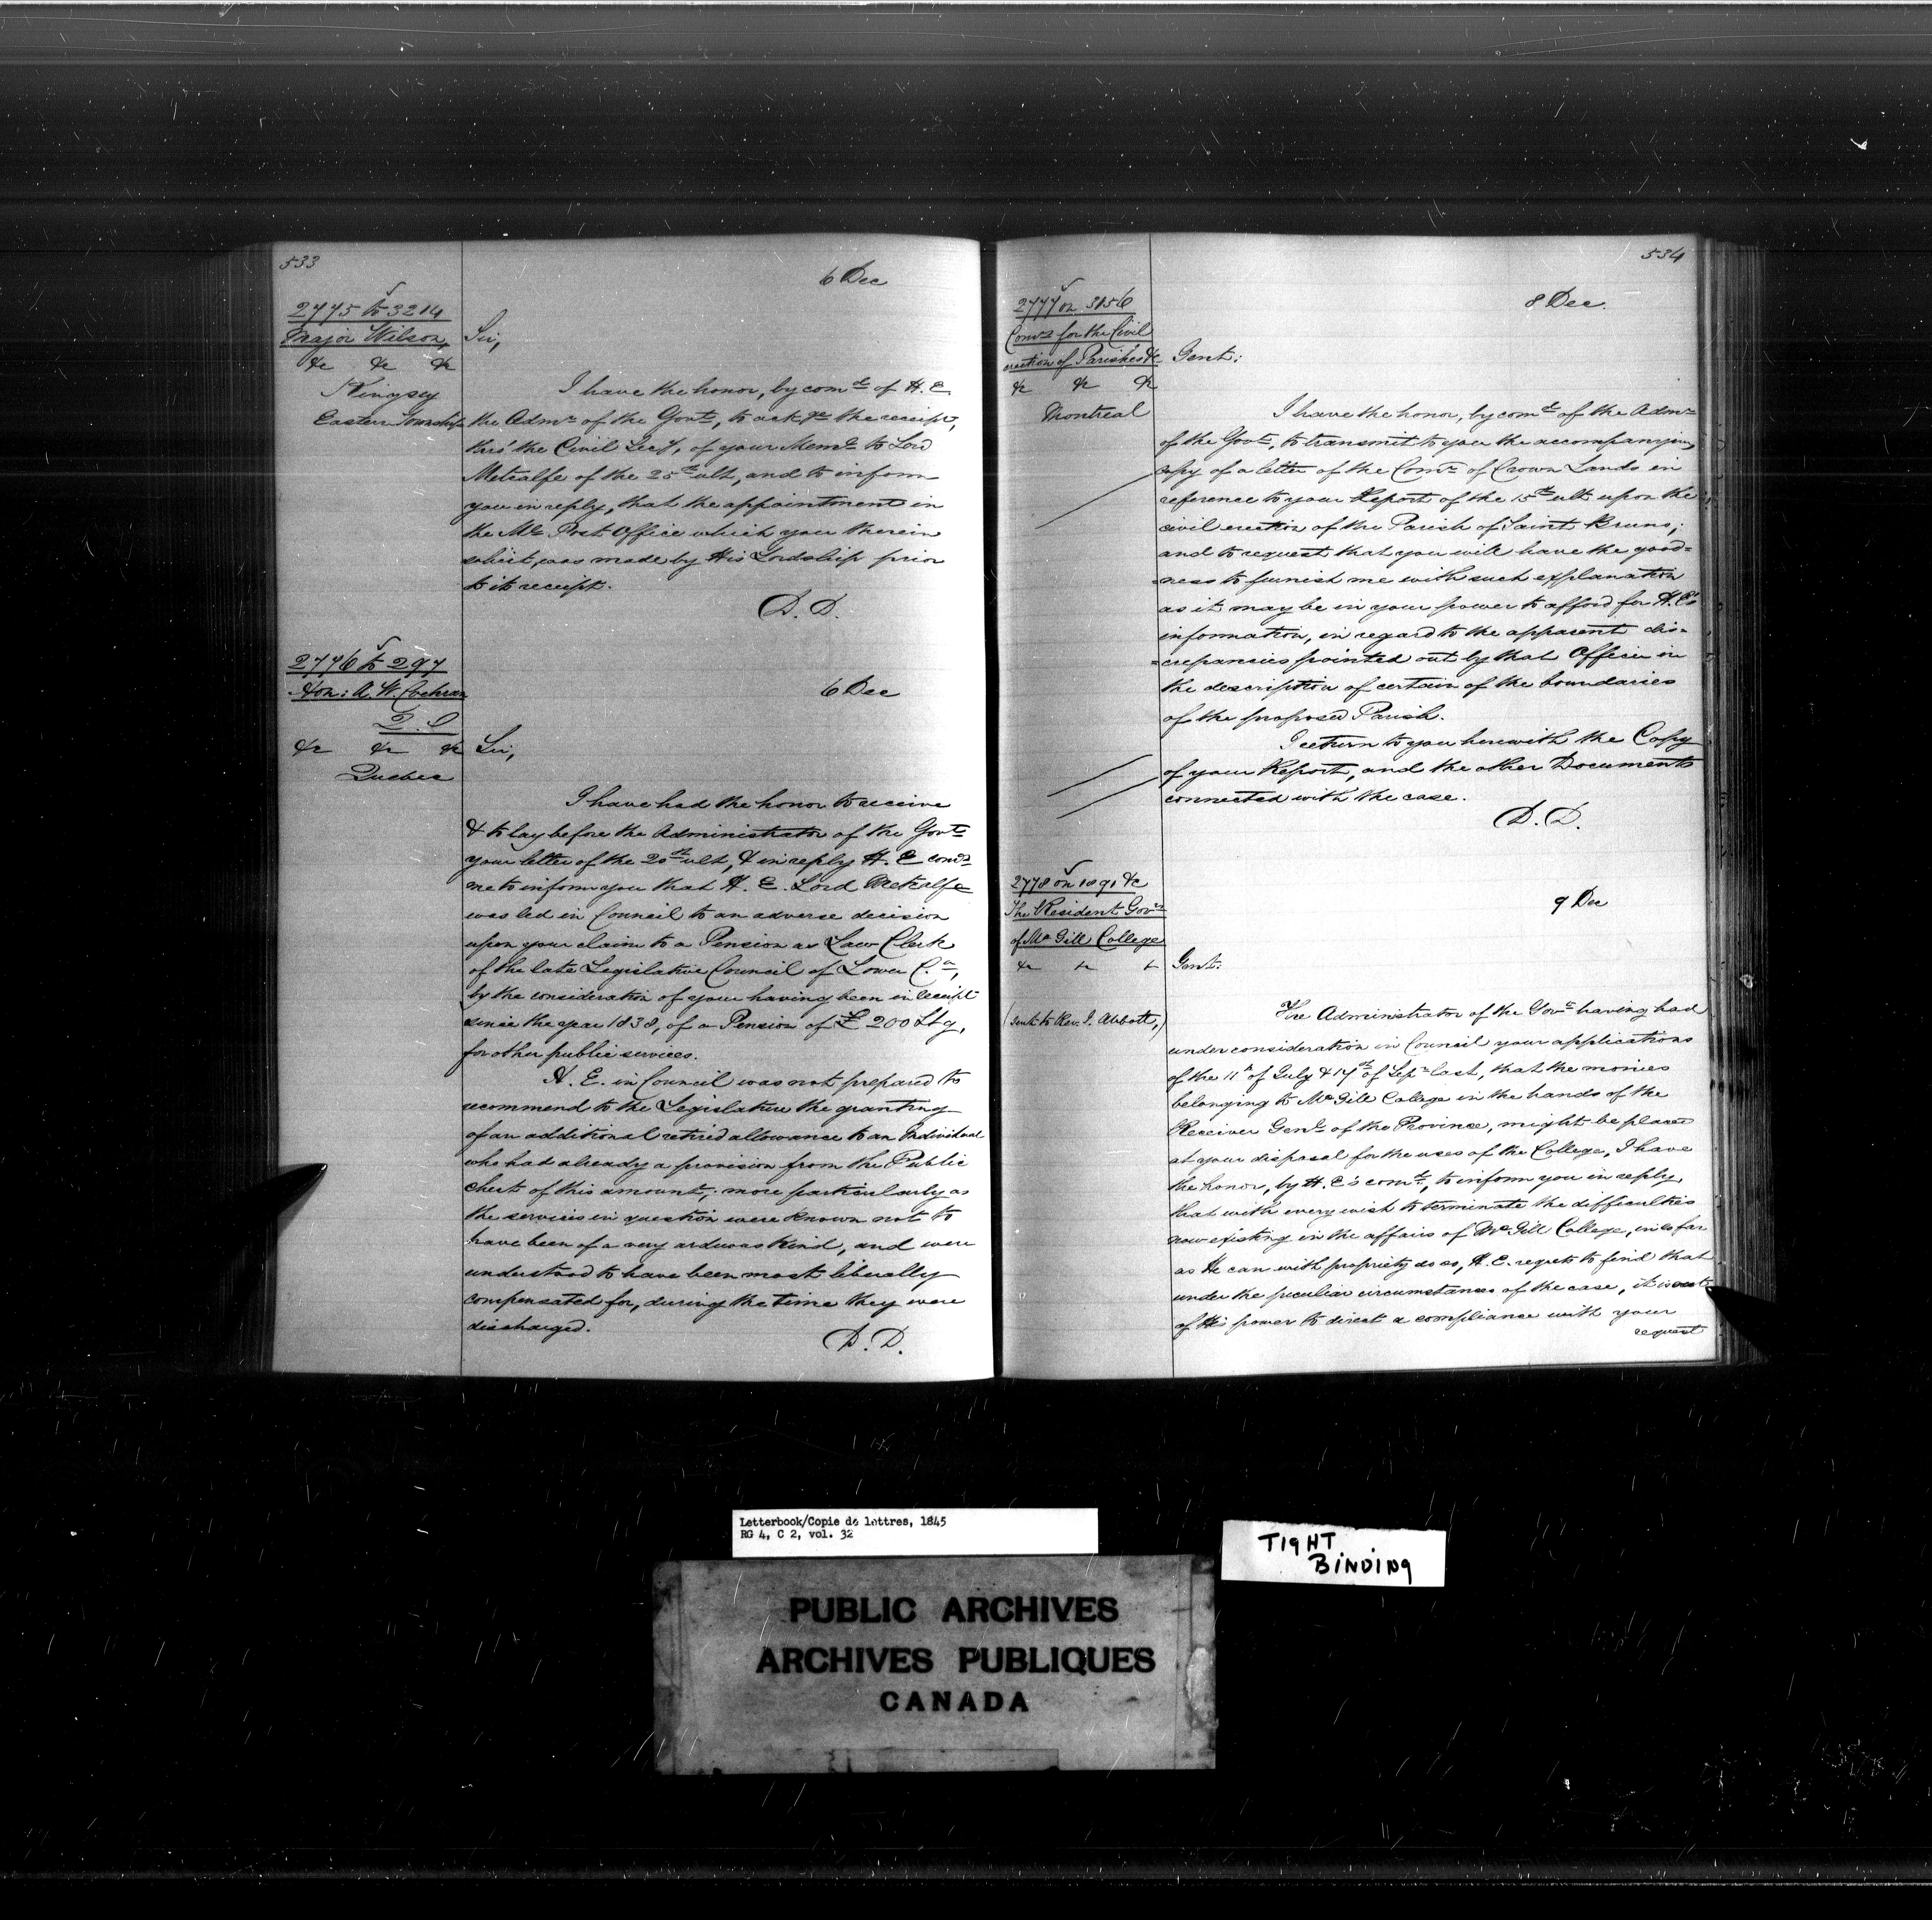 533
6 Dec
2775 to 3214
Major Wilson,
&c &c &c
Kingsey
Eastern Townships
Sir,
I have the honor, by comd of H. E
the Admr of the Govt, to ack ge the receipt,
thro' the Civil Secy, of your Meml to Lord
Metcalfe of the 25th ult, and to inform
you in reply, that the appointment in
the Ml Post Office which you therein
solicit, was made by His Lordship prior
to its receipt.
D. D.
2776 to 297
Hon: A. W. Cochran
&c &c &c
Quebec
6 Dec
Sir,
I have had the honor to receive
& to lay before the Administrator of the Govt
your letter of the 20th ult, & in reply H. E comds
me to inform you that H. E. Lord Metcalfe
was led in Council to an adverse decision
upon your claim to a Pension as Law Clerk
of the late Legislative Council of Lower C.a,
by the consideration of your having been in receipt
since the year 1838, of a Pension of £ 200 Stg,
for other public services.
H. E. in Council was not prepared to
recommend to the Legislature the granting
of an additional retired allowance to an Individual
who had already a provision from the Public
chest of this amount; more particularly as
the services in question were known not to
have been of a very arduous kind, and were
understood to have been most liberally
compensated for, during the time they were
discharged.
D. D.
534
8 Dec.
2777 on 3156
Comrs for the Civil
erection of Parishes &c
&c &c &c
Montreal
Gent:
I have the honor, by comd of the Admr
of the Govt, to transmit to you the accompanying
copy of a letter of the Comr of Crown Lands in
reference to your Report of the 15th ult upon the
civil erection of the Parish of Saint Bruno;
and to request that you will have the good=
=ness to furnish me with such explanation
as it may be in your power to afford for H. E's
information, in regard to the apparent dis=
=crepancies pointed out by that Officer in
the description of certain of the boundaries
of the proposed Parish.
I return to you herewith the Copy
of your Report, and the other Documents
connected with the case.
D. D.
2778 on 1891 &c
The Resident Govrs
of McGill College
&c
(sent to Rev. J. Abbott,)
9 Dec
Gent:
The Administrator of the Govt having had
under consideration in Council your applications
of the 11th of July & 17th of Sepr last, that the monies
belonging to McGill College in the hands of the
Receiver Genl of the Province, might be placed
at your disposal for the uses of the College, I have
the honor, by H. E's comd, to inform you in reply,
that with every wish to terminate the difficulties
now existing in the affairs of McGill College, in so far
as He can with propriety do so, H. E. regrets to find that
under the peculiar circumstances of the case, it is out
of His power to direct a compliance with your
request
Letterbook/Copie de lettres, 1845
RG 4, C 2, vol. 32
TIGHT
BINDING
PUBLIC ARCHIVES
ARCHIVES PUBLIQUES
CANADA